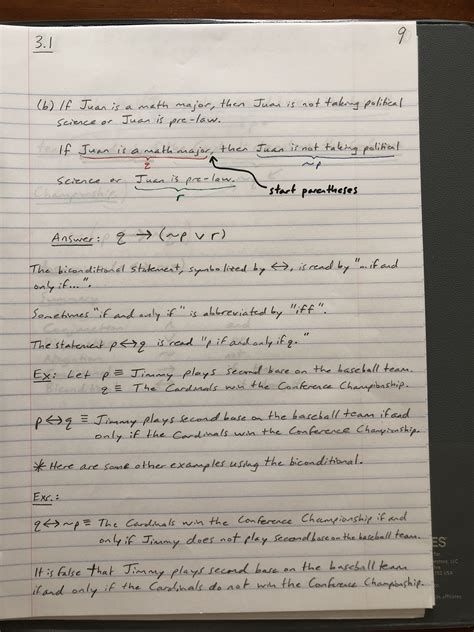 3.1
9
(b) If Juan is a math major, then Juan is not taking political
science or Juan is pre-law.
If Juan is a math major, then Juan is not taking political
q
~p
science or Juan is pre-law.
r
start parentheses
Answer: q → (~p ∨ r)
The biconditional statement, symbolized by ↔, is read by "...if and
only if...".
Sometimes "if and only if" is abbreviated by "iff".
The statement p↔q is read "p if and only if q."
Ex: Let p ≡ Jimmy plays second base on the baseball team.
q ≡ The Cardinals win the Conference Championship.
p↔q ≡ Jimmy plays second base on the baseball team if and
only if the Cardinals win the Conference Championship.
* Here are some other examples using the biconditional.
Exs.:
q↔~p ≡ The Cardinals win the Conference Championship if and
only if Jimmy does not play second base on the baseball team.
It is false that Jimmy plays second base on the baseball team
if and only if the Cardinals do not win the Conference Championship.